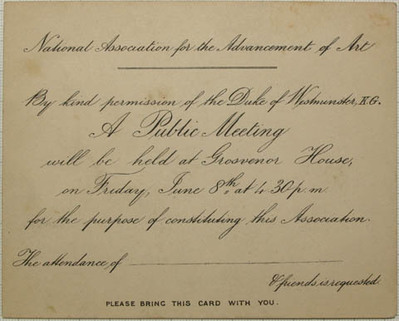 National Association for the Advancement of Art
By kind permission of the Duke of Westminster, K.G.
A Public Meeting
will be held at Grosvenor House,
on Friday, June 8th, at 4.30 p.m
for the purpose of constituting this Association.
The attendance of
& friends is requested.
PLEASE BRING THIS CARD WITH YOU.